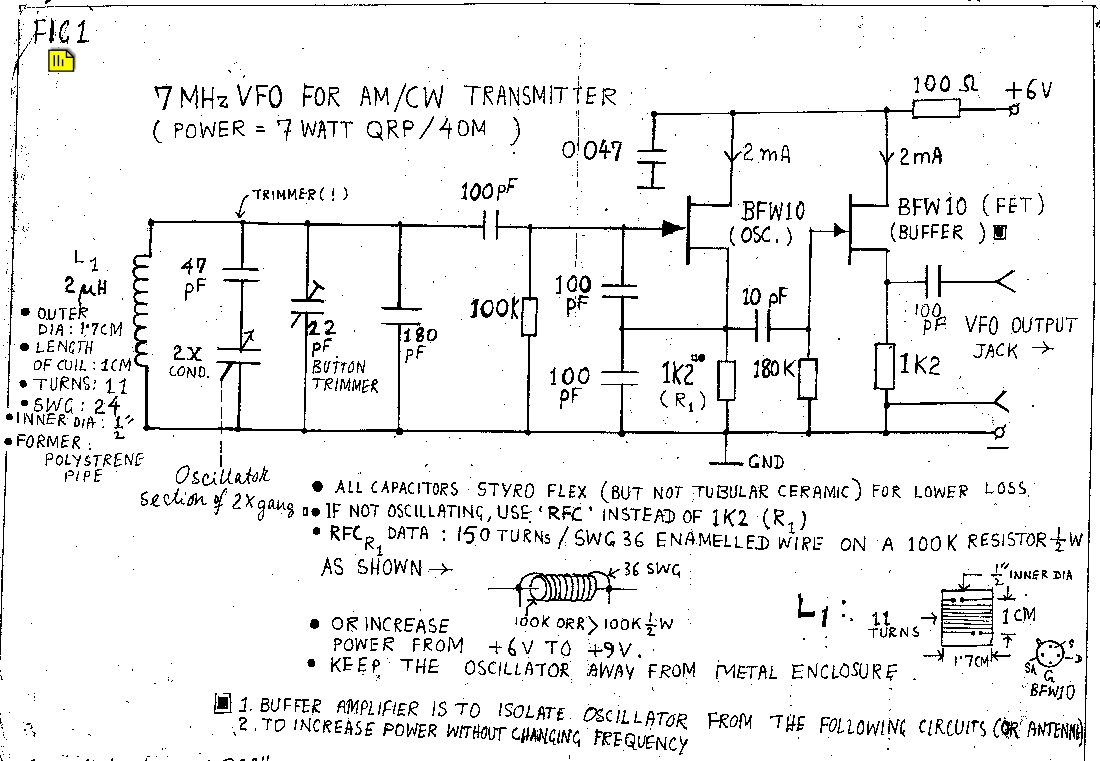 FIG 1
7 MHz VFO FOR AM/CW TRANSMITTER
( POWER = 7 WATT QRP/40M )
100 Ω
+6V
0.047
2 mA
2 mA
TRIMMER(!)
100 pF
BFW10
(OSC.)
BFW10 (FET)
(BUFFER)
L1
2 µH
47
pF
100
pF
10 pF
100K
100
pF
VFO OUTPUT
JACK →
• OUTER
DIA: 1.7CM
• LENGTH
OF CUIL: 1CM
• TURNS: 11
• SWG: 24
• INNER DIA: 1/2"
• FORMER:
POLYSTRENE
PIPE
2X
COND.
22
pF
BUTTON
TRIMMER
180
pF
100
pF
1K2
(R1)
180K
1K2
GND
Oscillator
section of 2X gang
• ALL CAPACITORS STYRO FLEX (BUT NOT TUBULAR CERAMIC) FOR LOWER LOSS.
• IF NOT OSCILLATING, USE 'RFC' INSTEAD OF 1K2 (R1)
• RFC R1 DATA: 150 TURNS/SWG 36 ENAMELLED WIRE ON A 100K RESISTOR 1/2 W
AS SHOWN →
36 SWG
100K ORR > 100K 1/2 W
• OR INCREASE
POWER FROM +6V TO +9V.
• KEEP THE OSCILLATOR AWAY FROM METAL ENCLOSURE
L1:
11
TURNS
1/2" INNER DIA
1 CM
1.7CM
S
D
G
BFW10
1. BUFFER AMPLIFIER IS TO ISOLATE OSCILLATOR FROM THE FOLLOWING CIRCUITS (OR ANTENNE)
2. TO INCREASE POWER WITHOUT CHANGING FREQUENCY